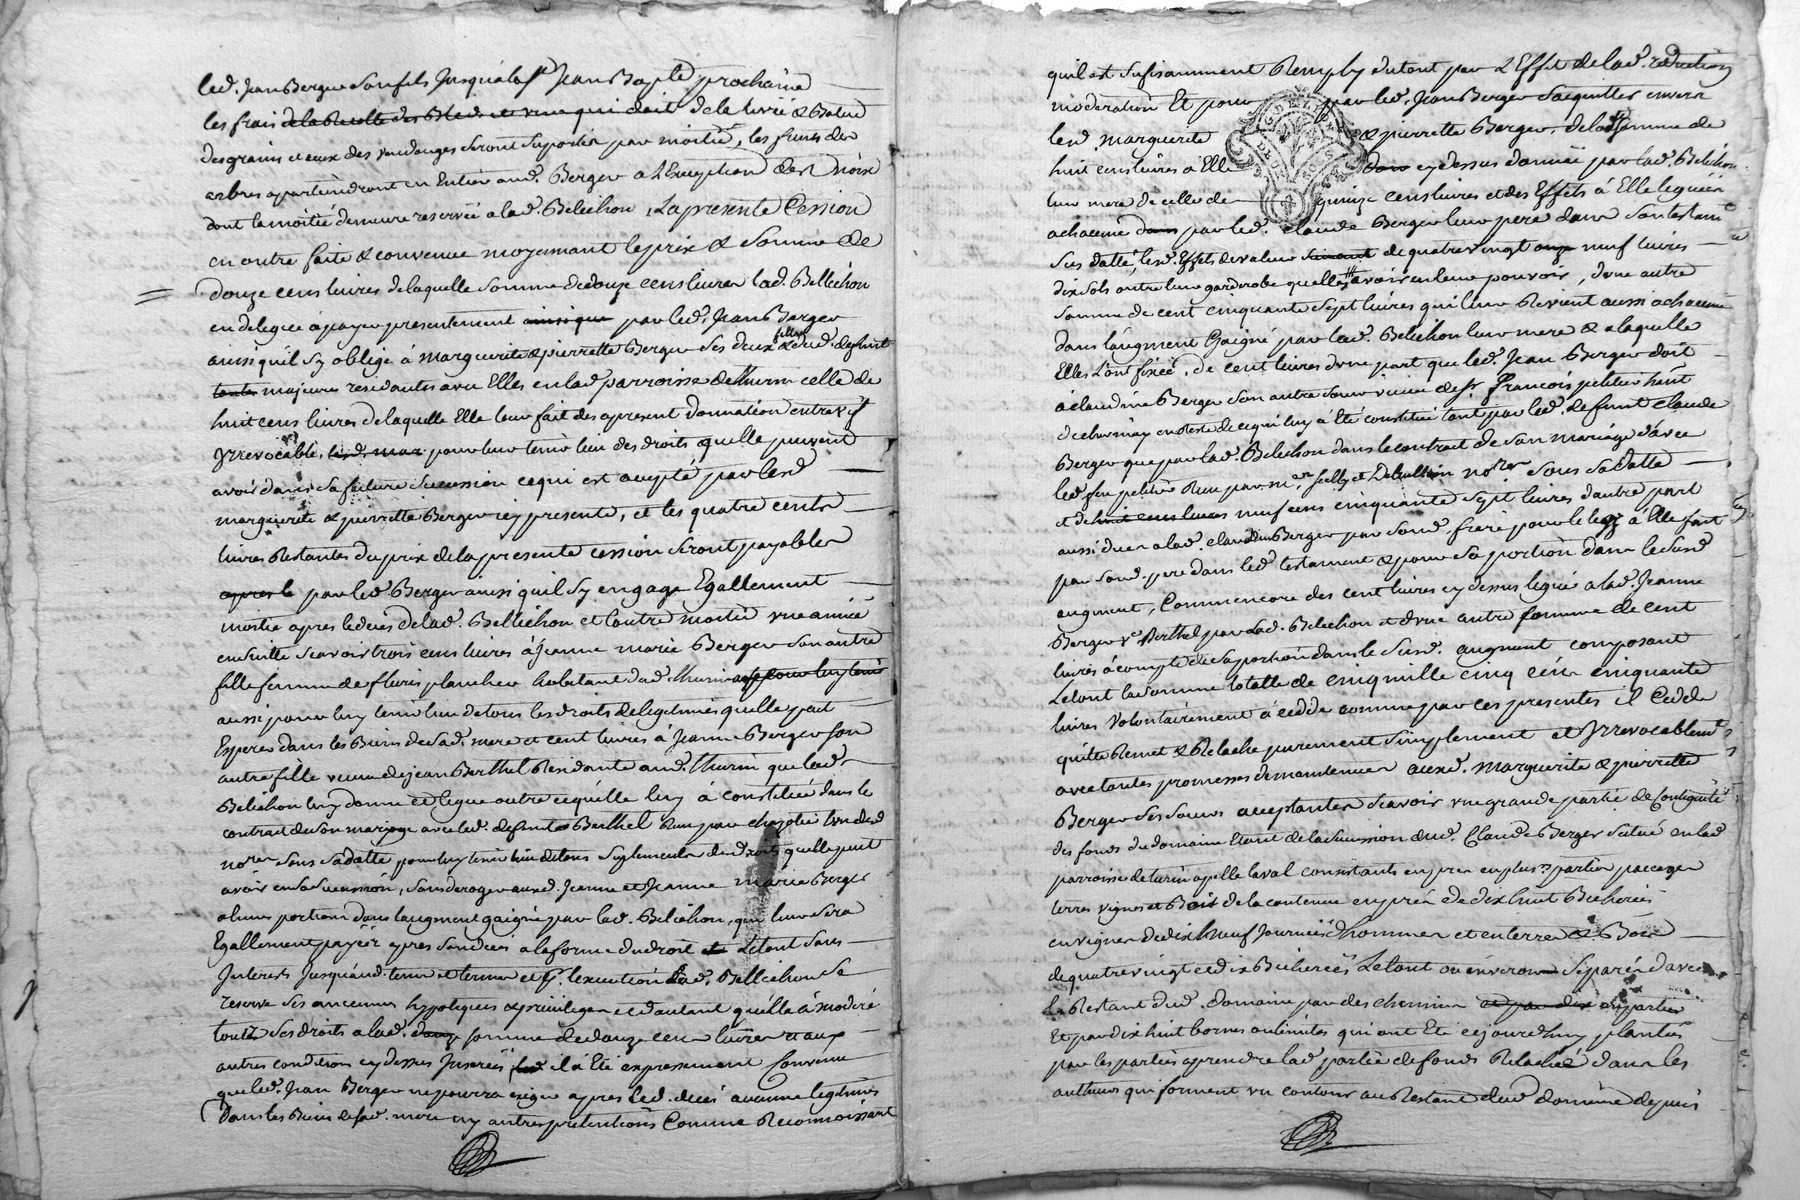 led. Jean Berger son fils Jusqua la fe Jean Bapte prochaine
les frais de la Recolte des Bleds et vin qui doit de la livrée & Battue
des grains et ceux des vendanges seront suportés par moitié, les fruits des
arbres apartiendront en Entier aud. Berger a l'Exception des noix
dont la moitié demeure reservée a lad. Belichon, La presente Cession
en outre faite & convenue moyennant le prix & somme de
Douze cens livres de laquelle somme de douze cens livres lad. Bellichon
en delegue à payer presentement ainsi que par led. Jean Berger
ainsi quil sy oblige à marguerite & pierrette Berger ses deux filles & dud. defunt
toutes majeures residantes avec Elles en lad parroisse de Thurin celle de
huit cens livres de laquelle Elle leur fait des apresent Donnation entre vif
Yrrevocable, pour leur tenir lieu des droits quelle peuvent
avoir dans sa future sucession ce qui est accepté par lesd
marguerite & pierrette Berger icy presente, et les quatre cents
livres Restantes du prix de la presente cession seront payables
apres le par led Berger ainsi quil sy engage Egallement
moitié apres le deces de lad. Bellichon et lautre moitié une année
en suitte scavoir trois cens livres à Jeanne marie Berger son autre
fille femme de fleury plancher habitant dud Thurin
aussi pour luy tenir lieu de tous les droits de legitimes quelle peut
Esperer dans les Biens de sad. mere et cent livres à Jeanne Berger son
autre fille veuve de jean Berthel Residante aud. Thurin que lad.
Belichon luy donne et legue outre ce quelle luy a constitué dans le
contrat de son mariage avec led. defunt Berthel Reçu par lun desd
nores sous sa datte pour luy tenir lieu de tous suplements desd droits quelle peut
avoir en sa sucession, sans deroger auxd. Jeanne et Jeanne marie Berger
a leurs portion dans laugment gaigné par lad. Belichon, qui leur sera
Egallement payée apres son deces a la forme du droit et Letout sans
Interets Jusquaud. terme et termes et pr. lexecution lad. Bellichon se
reserve ses anciennes hypoteques & privileges et dautant quelle à moderé
toutes ses droits a lad. somme de douze cens livres et aux
autres condition cy dessus Inserées il à Eté expressement Convenu
que led. Jean Berger ne pourra exiger apres led. deces aucunne legitimes
Dans les Biens de sad. mere ny autres pretentions Comme Reconnoissant
quil est sufisamment Remply du tout par l'Effet de lad. reduction
moderation Et pour par led. Jean Berger sacquitter envers
lesd marguerite & pierrette Berger. de la somme de
huit cens livres à Elle cy dessus donnée par lad. Belichon
leur mere de celle de quinze cens livres et des Effets à Elle leguée
a chacune dans par led. Claude Berger leur pere dans son testamt
sus datté, lesd. Effets de valeur de quatre vingt neuf livres
dix sols outre leur garderobe quelles avoir en leur pouvoir, d'une autre
somme de cent cinquante sept livres qui leur Revient aussi a chacune
dans laugment Gaigné par lad. Belichon leur mere & a laquelle
Elles l'ont fixée, de cent livres dune part que led. Jean Berger doit
à claudine Berger son autre soeur veuve de sr françois petitier
de charnay en Reste de ce qui luy a Eté constitué tant par led. defunt Claude
Berger que par lad. Belichon dans le contrat de son mariage d'avec
led feu petitier Reçu par me. nores sous sa datte
et de huit cens livres neuf cens cinquante sept livres d'autre part
aussi dues a lad. claudine Berger par sond. frere pour le legs à Elle fait
par sond. pere dans led testament & pour sa portion dans le susd
augment, Comme encore des cent livres cy dessus legué a lad. Jeanne
Berger ve Berthel par Lad. Belichon et d'une autre somme de cent
livres à compte de sa portion dans le susd. augment, composant
Letout la somme totalle de cinq mille cinq cens cinquante
livres volontairement à ceddé comme par ces presentes il Cedde
quitte Remet & Relache purement simplement et Yrrevocablemt
avec toutes promesses de maintenir auxd. marguerite & pierrette
Berger ses soeurs acceptantes scavoir une grande partie de Contiguité
des fonds du domaine Etant de la sucession dud. Claude Berger situé en lad
parroisse de turin apellé laval consistants en prés en plusrs parties pacages
terres vignes et Bois de la contenue en pré de dix huit Bicherées
en vignes de dix neuf Journées d'hommes et en terre & Bois
de quatre vingt et dix Bicherées Letout ou environ separé d'avec
le Restant dud. domaine par des chemins en partie
Et par dix huit bornes ou limites qui ont Eté cejourdhuy plantées
par les parties aprendre lad partie de fonds Relachée dans les
autheurs qui forment un contour au Restant dud domaine depuis